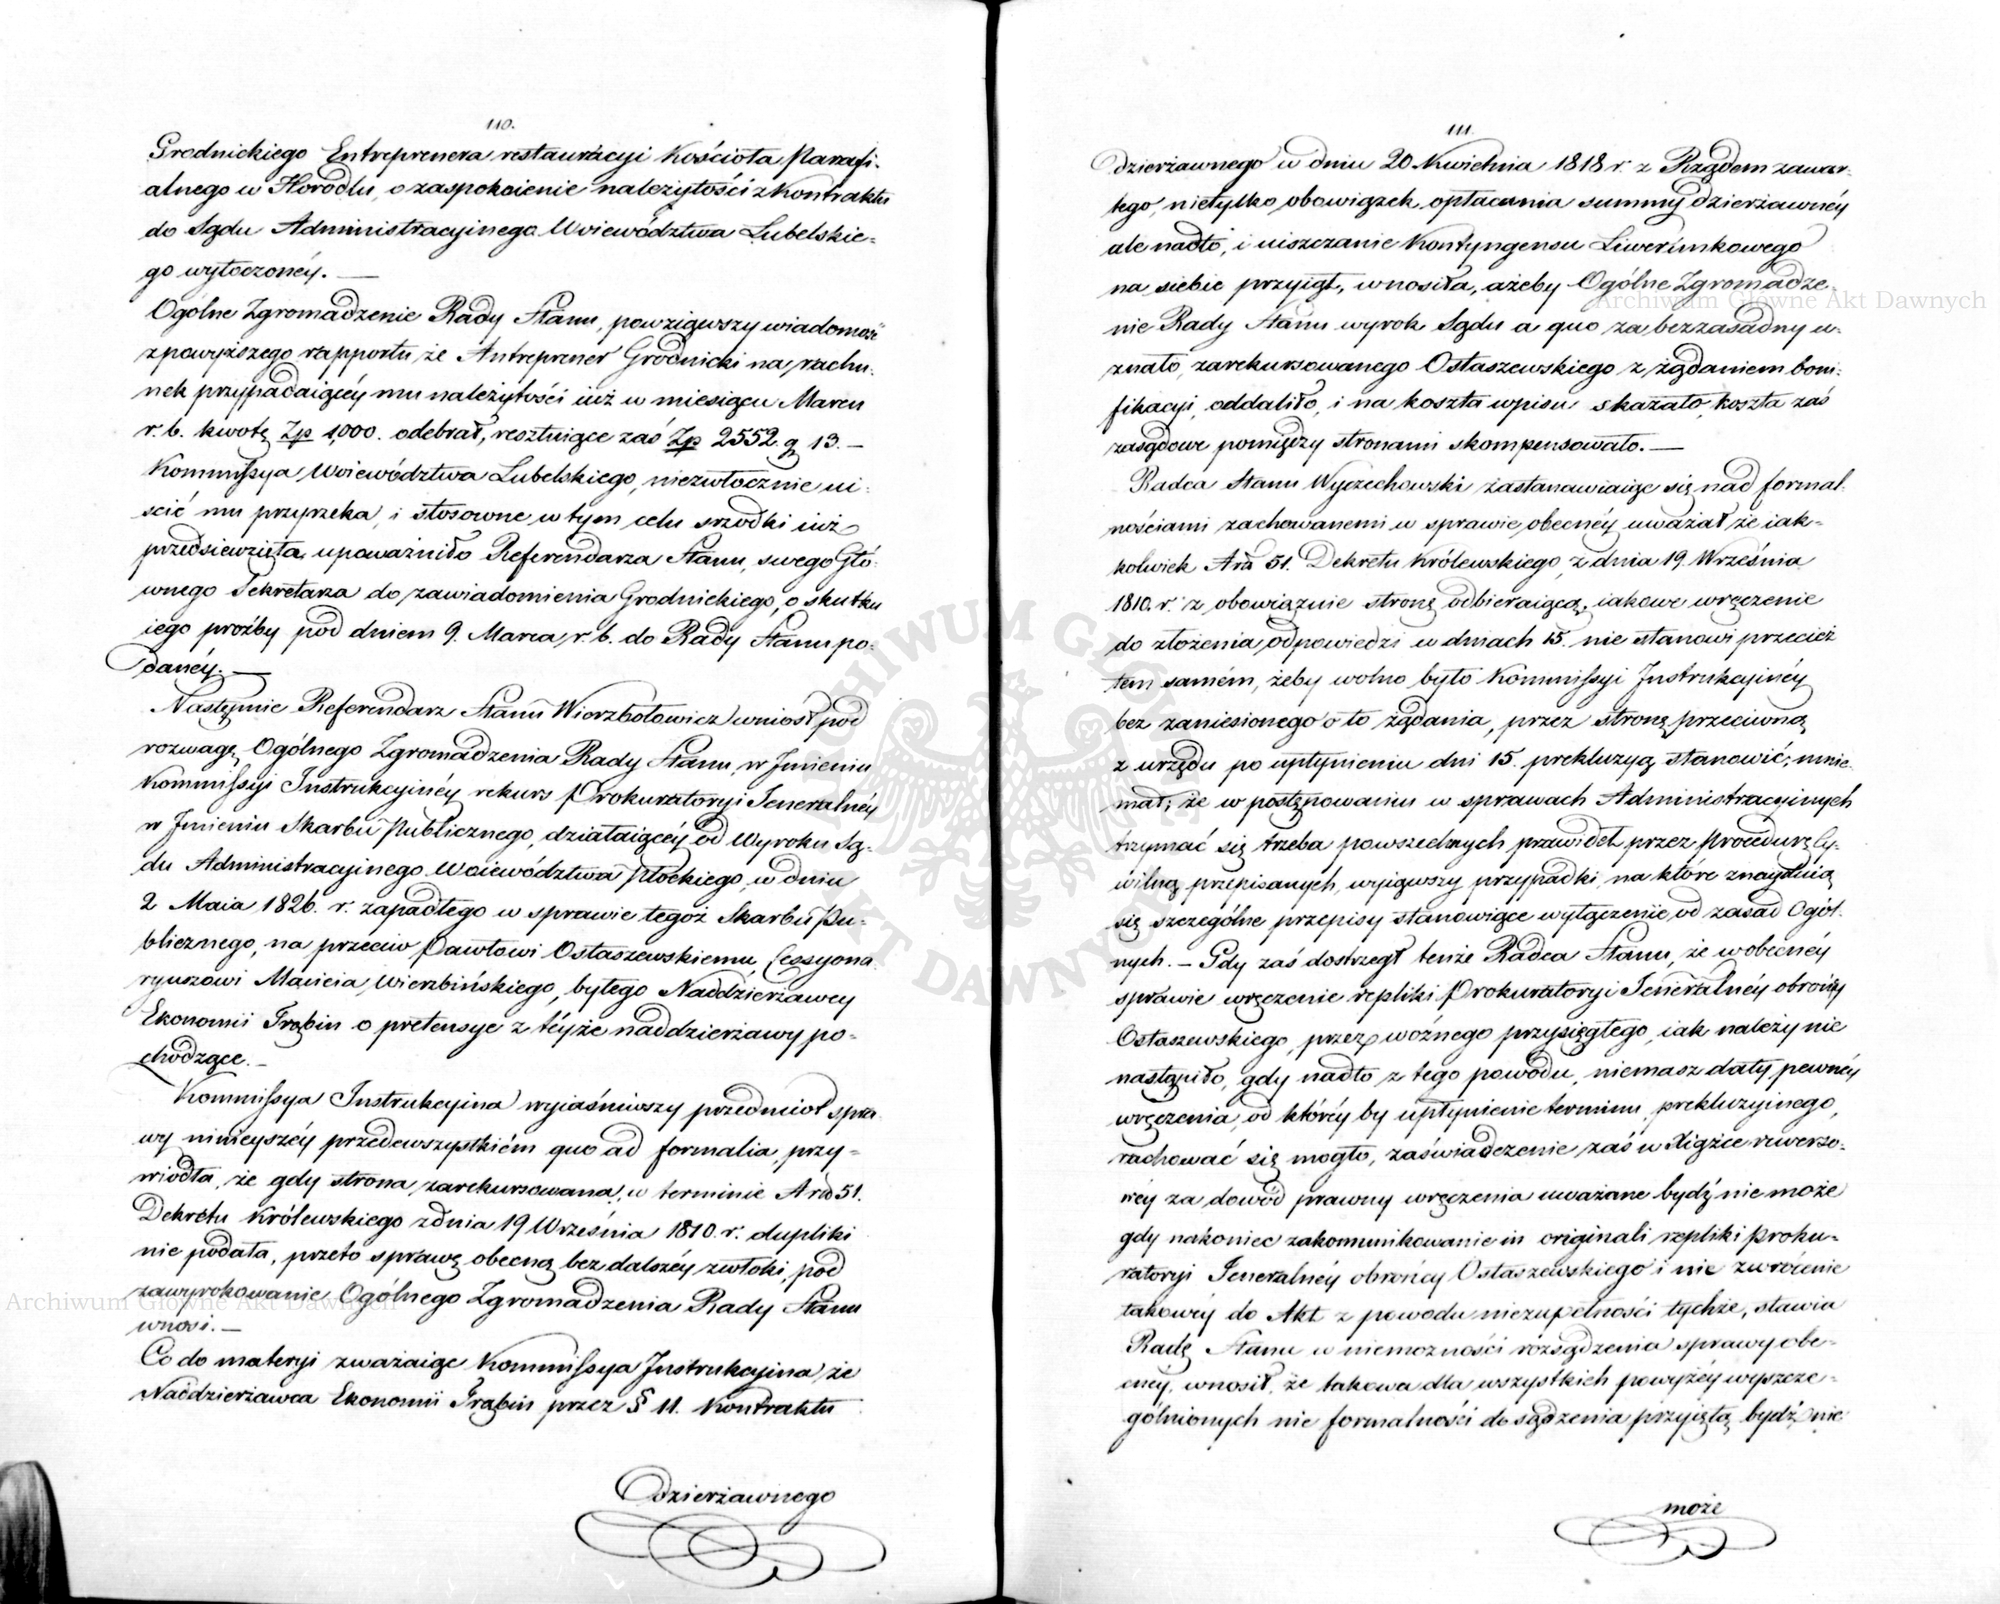 110.
Grodnickiego Entreprenera restauracyi Kościoła Parafi-
alnego w Horodlu, o zaspokoienie należytości z Kontraktu
do Sądu Administracyinego Woiewództwa Lubelskie-
go wytoczonéy. —
Ogólne Zgromadzenie Rady Stanu, powziąwszy wiadomość
z powyższego rapportu że Antreprener Grodnicki na rachu-
nek przypadaiącéy mu należytości iuż w miesiącu Marcu
r. b. kwotę Zp 1,000. odebrał, resztuiące zaś Zp 2552. g 13. —
Kommissya Woiewództwa Lubelskiego, niezwłocznie ui-
ścić mu przyrzeka, i stosowne w tym celu srzodki iuż
przedsiewzięta, upoważniło Referendarza Stanu, swego Głó-
wnego Sekretarza do zawiadomienia Grodnickiego, o skutku
iego prożby pod dniem 9. Marca r. b. do Rady Stanu po-
danéy. —
Następnie Referendarz Stanu Wierzbołowicz wniósł pod
rozwagę Ogólnego Zgromadzenia Rady Stanu, w Jmieniu
Kommissyi Instrukcyinéy rekurs Prokuratoryi Jeneralnéy
w Jmieniu Skarbu Publicznego, działaiącéy od Wyroku Są-
du Administracyinego Woiewództwa Płockiego, w dniu
2 Maia 1826. r. zapadłego w sprawie tegoż Skarbu Pu-
blicznego, na przeciw Pawłowi Ostaszewskiemu, Cessyona-
ryuszowi Macieia Wierzbińskiego, byłego Naddzierżawcy
Ekonomii Trąbin o pretensye z téyże naddzierżawy po-
chodzące. —
Kommissya Instrukcyina wyiaśniwszy przedmiot spra-
wy ninieyszéy przedewszystkiém quo ad formalia, przy-
wiodła, że gdy strona zarekursowana, w terminie Artu 51.
Dekretu Królewskiego z dnia 19 Września 1810. r. dupliki
nie podała, przeto sprawę obecną bez dalszéy zwłoki, pod
zawyrokowanie Ogólnego Zgromadzenia Rady Stanu
wnosi. —
Co do materyi zważaiąc Kommissya Instrukcyina, że
Naddzierżawca Ekonomii Trąbin przez § 11. Kontraktu
Dzierżawnego
111.
dzierżawnego w dniu 20 Kwietnia 1818 r. z Rządem zawar-
tego, nietylko obowiązek opłacania summy dzierżawnéy
ale nadto, i uiszczanie Kontyngensu Liwerunkowego
na siebie przyiął, wnosiła, ażeby Ogólne Zgromadze-
nie Rady Stanu wyrok Sądu a quo za bezzasadny u-
znało, zarekursowanego Ostaszewskiego z żądaniem boni-
fikacyi, oddaliło, i na koszta wpisu skazało, koszta zaś
zasądowe pomiędzy stronami skompensowało. —
Radca Stanu Wyczechowski zastanawiaiąc się nad formal-
nościami zachowanemi w sprawie obecnéy uważał że iak-
kolwiek Artł 51. Dekretu Królewskiego z dnia 19. Września
1810. r. z obowiąznie stronę odbieraiącą, iakowe wręczenie
do złożenia odpowiedzi w dniach 15. nie stanowi przecież
tem samém, żeby wolno było Kommissyi Instrukcyinéy
bez zaniesionego o to żądania, przez stronę przeciwną
z urzędu po upłynieniu dni 15. prekluzyą stanowić; mnie-
mał; że w postępowaniu w sprawach Administracyinych
trzymać się trzeba powszechnych prawideł przez Procedurę Cy-
wilną przepisanych, wyiąwszy przypadki, na które znayduią
się szczególne przepisy stanowiące wyłączenie od zasad Ogól-
nych. — Gdy zaś dostrzegł tenże Radca Stanu, że w obecnéy
sprawie wręczenie repliki Prokuratoryi Jeneralnéy obrońcy
Ostaszewskiego, przez woźnego przysięgłego, iak należy nie
nastąpiło, gdy nadto z tego powodu, niemasz daty pewnéy
wręczenia, od któréy by upłynienie terminu, prekluzyinego,
rachować się mogło, zaświadczenie zaś w Xiążce rewerso-
wéy za dowód prawny wręczenia uważane bydź nie może
gdy nakoniec zakommunikowanie in originali repliki Proku-
ratoryi Jeneralnéy obrońcy Ostaszewskiego i nie zwrócenie
takowéy do Akt z powodu niezupełności tychże, stawia
Radę Stanu w niemożności rozsądzenia sprawy obe-
cnéy, wnosił, że takowa dla wszystkich powyżéy wyszcze-
gólnionych nie formalności do sądzenia przyiętą bydź nie
może
Archiwum Główne Akt Dawnych
Archiwum Główne Akt Dawnych
ARCHIWUM GŁÓWNE AKT DAWNYCH